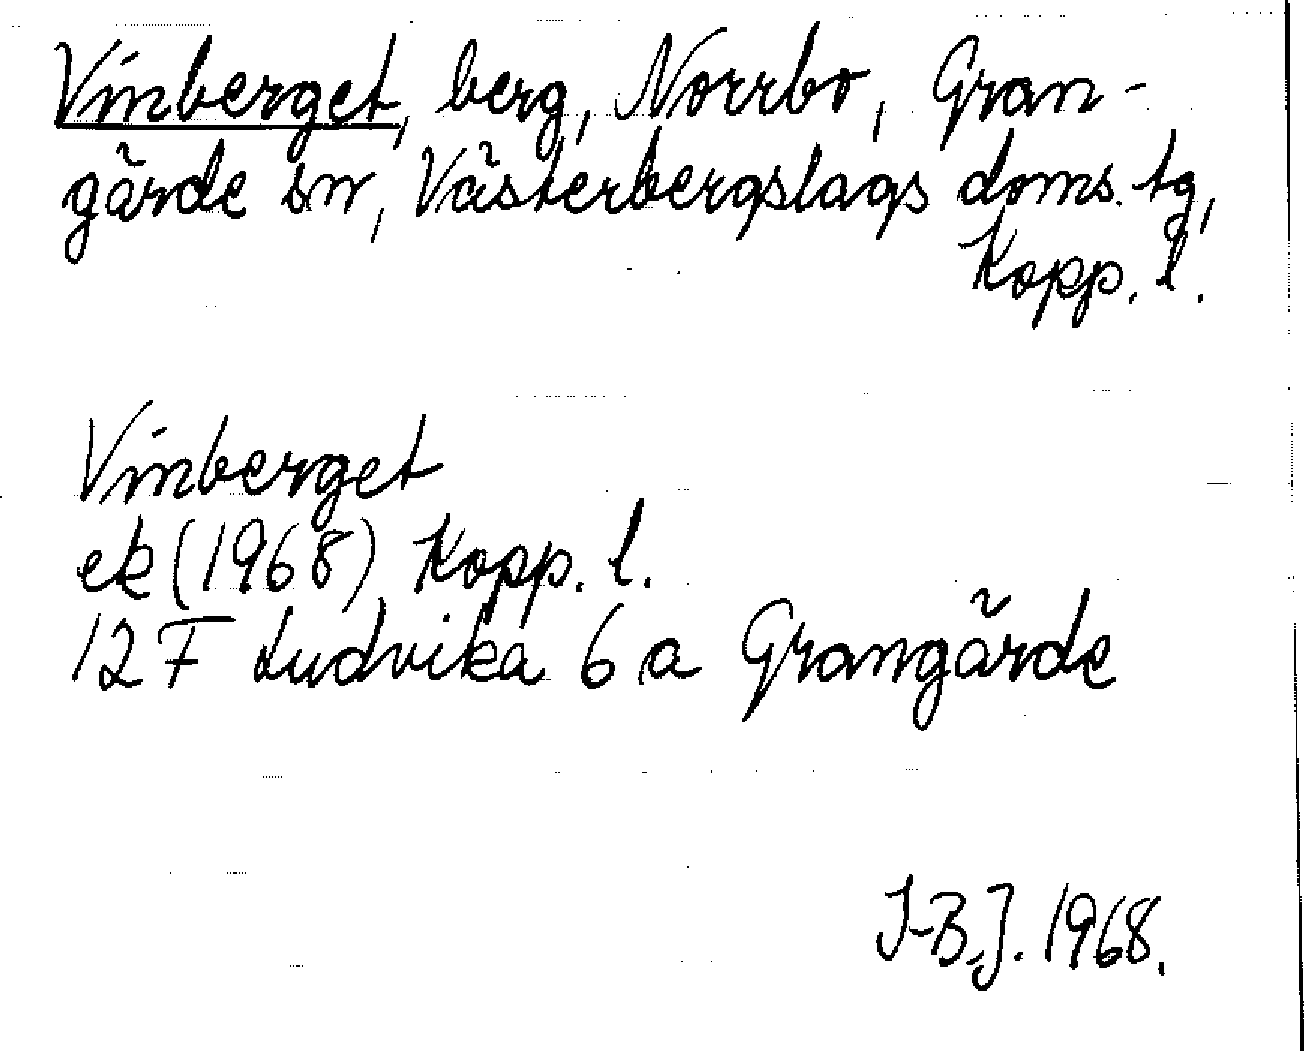 Vinberget, berg, Norrbo, Gran-
gärde sn, Västerbergslags doms. tg,
Kopp. l.
Vinberget
ek (1968) Kopp. l.
12 F Ludvika 6 a Grangärde
I-B.J. 1968.